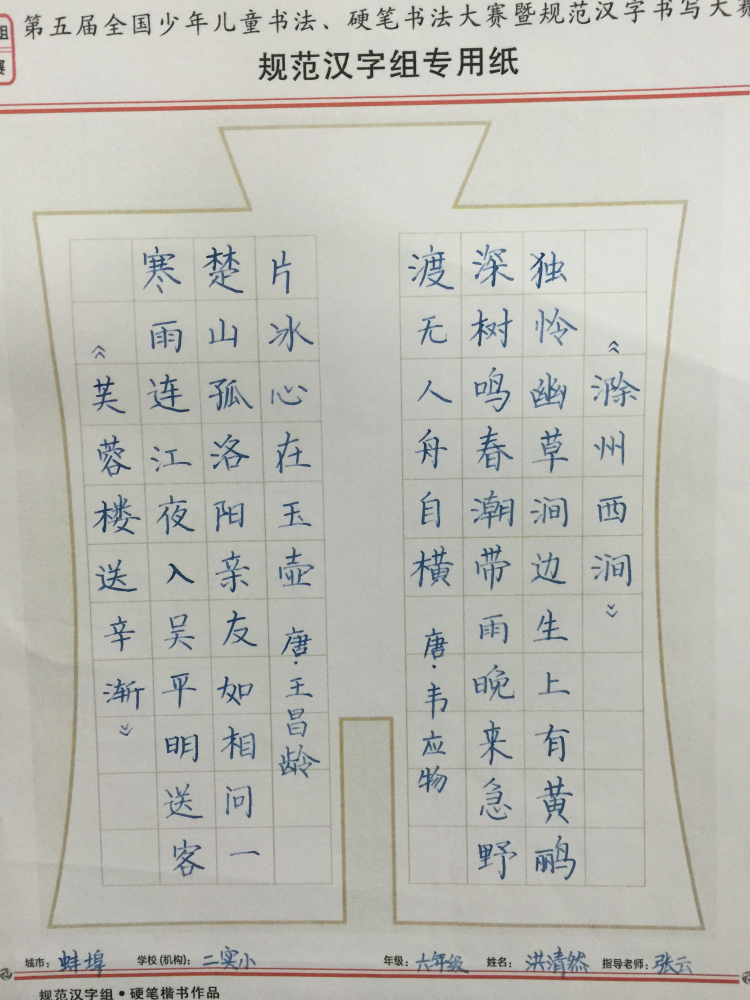 第五届全国少年儿童书法、硬笔书法大赛暨规范汉字书写大赛
规范汉字组专用纸
《滁州西涧》
独怜幽草涧边生上有黄鹂
深树鸣春潮带雨晚来急野
渡无人舟自横 唐·韦应物
《芙蓉楼送辛渐》
寒雨连江夜入吴平明送客
楚山孤洛阳亲友如相问一
片冰心在玉壶 唐·王昌龄
城市：蚌埠 学校(机构)：二实小 年级：六年级 姓名：洪清然 指导老师：张云
规范汉字组·硬笔楷书作品